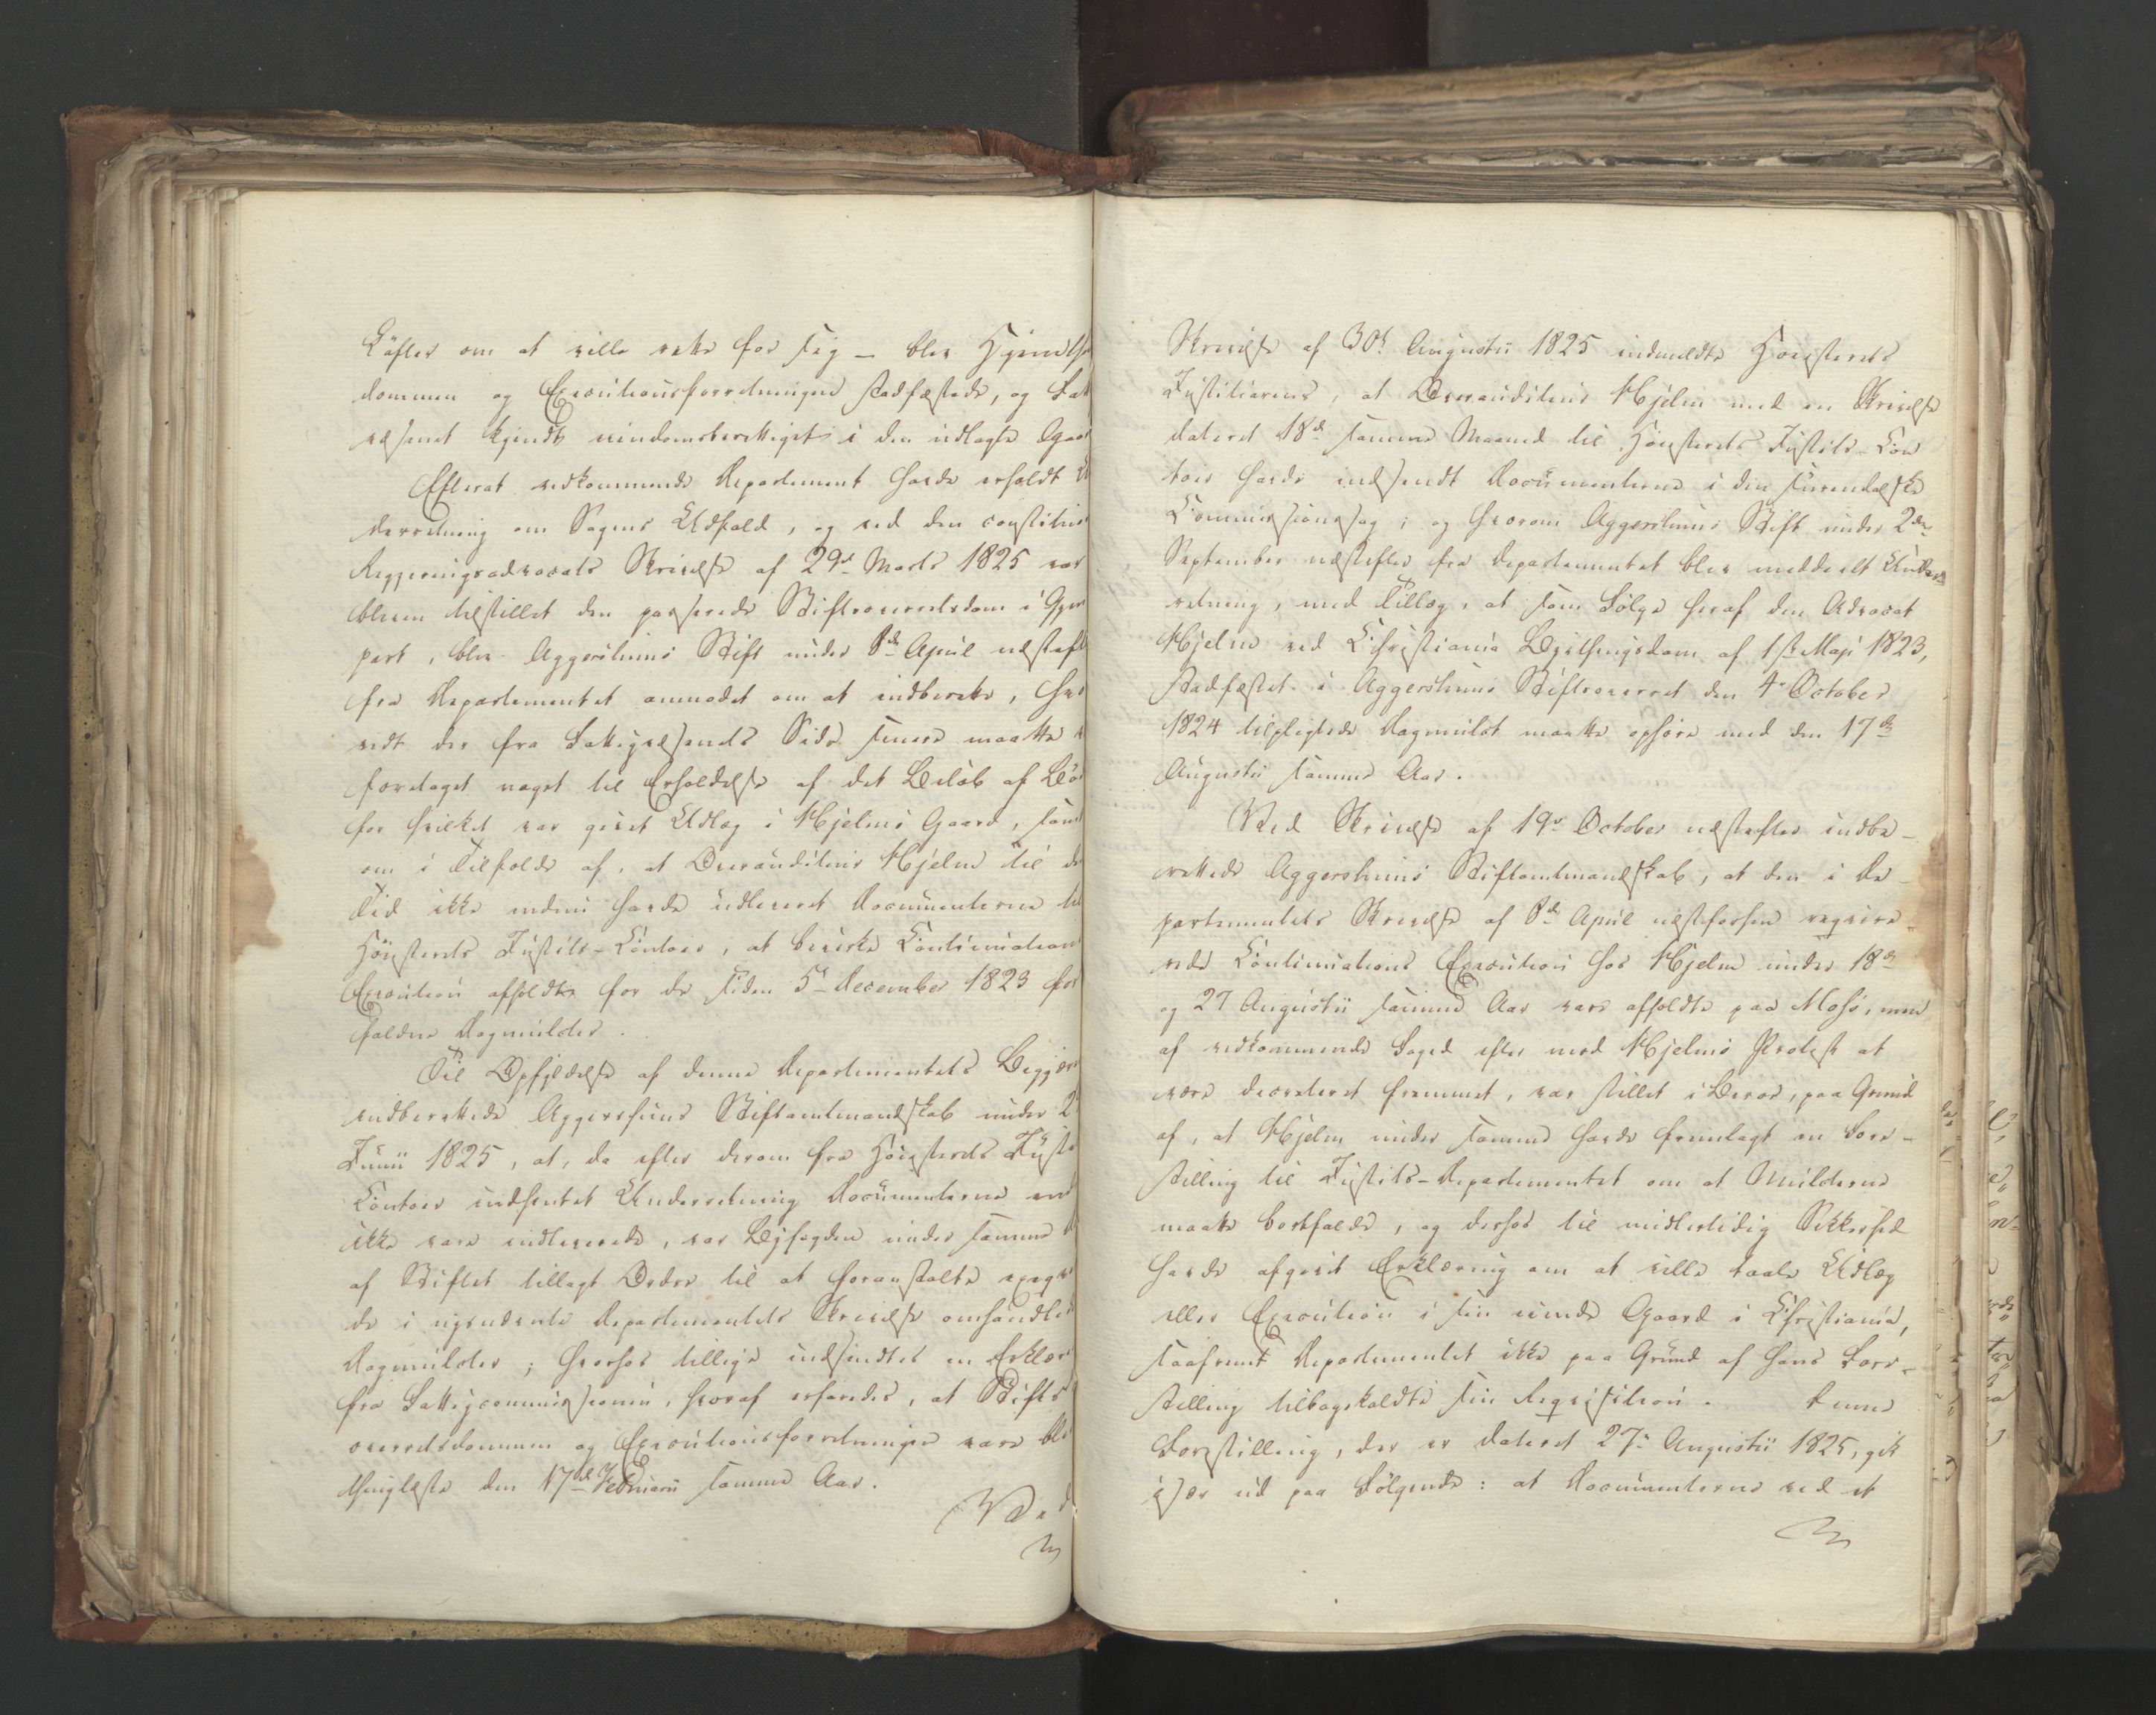 Løfter om at ville rette for sig – blev Hjemthings
dommen og Executionsforretningen stadfæstede, og Fat
væsenet kjendt eiendomsberettiget i den udlagte Gaar
Efterat vedkommende Departement havde erholdt
derretning om Sagens Udfald, og ved den constitue
Regjeringsadvocats Skrivelse af 29de Marts 1825 var
bleven tilstillet den passerede Stiftsoverretsdom i Gjen
part, blev Aggershuus Stift under 8de April næsteft
fra Departementet anmodet om at indberette, hvo
vidt der fra Fattigvæsenets Side senere maatte
foretaget noget til Erholdelse af det Beløb af Bø
for hvilket var givet Udlæg i Hjelms Gaard, sam
om i Tilfælde af, at Overauditeur Hjelm til de
Tid ikke endnu havde udleveret Documenterne til
Høiesterets Justits-Contoir, at bevirke Continuations
Execution afholdte for de siden 5te December 1823 for
faldne Dagmulcter.
Til Opfyldelse af denne Departementets Begjæri
indberettede Aggershuus Stiftamtmandskab under 2
Junii 1825, at, da efter derom fra Høiesterets Justi
Contoir indhentet Underretning Documenterne end
ikke vare indleverede, var Byfogden under samme
af Stiftet tillagt Ordre til at foranstalte exeqv
de i nysnævnte Departementets Skrivelse omhandlede
Dagmulcter; hvorhos tillige indsendtes en Erklær
fra Fattigcommissionen, hvoraf erfaredes, at Stifts
overretsdommen og Executionsforretningen vare ble
thinglæste den 17de Februarii samme Aar.
Ved
Skrivelse af 30te Augustii 1825 indmeldte Høiesterets
Justitiarius, at Overauditeur Hjelm med en Skrivelse
dateret 18de samme Maaned til Høiesterets Justits-Con
toir havde indsendt Documenterne i den Surendalske
Commissionssag; og hvorom Aggershuus Stift under 2den
September næstefter fra Departementet blev meddeelt Under
retning, med Tillæg, at som Følge heraf den Advocat
Hjelm ved Christiania Byethingsdom af 1ste Maji 1823,
stadfæstet i Aggershuus Stiftsoverret den 4de October
1824 tilpligtede Dagmulct maatte ophøre med den 17de
Augustii samme Aar.
Ved Skrivelse af 19de October næstefter indbe-
rettede Aggershuus Stiftamtmandskab, at den i De-
partementets Skrivelse af 8de April næstforhen reqvire-
rede Continuations Execution hos Hjelm under 18de
og 27 Augustii samme Aar vare afholdte paa Moss, men
af vedkommende Foged efter mod Hjelms Protest at
være decreteret fremmet, var stillet i Beroe, paa Grund
af, at Hjelm under samme havde fremlagt en Fore-
stilling til Justits-Departementet om at Mulcterne
maatte bortfalde, og derhos til midlertidig Sikkerhed
havde afgivet Erklæring om at ville taale Udlæg
eller Execution i sin eiende Gaard i Christiania,
saafremt Departementet ikke paa Grund af hans Fore-
stilling tilbagekaldte sin Reqvisition. Denne
Forestilling, der er dateret 27de Augustii 1825, gik
især ud paa Følgende: at Documenterne ved et